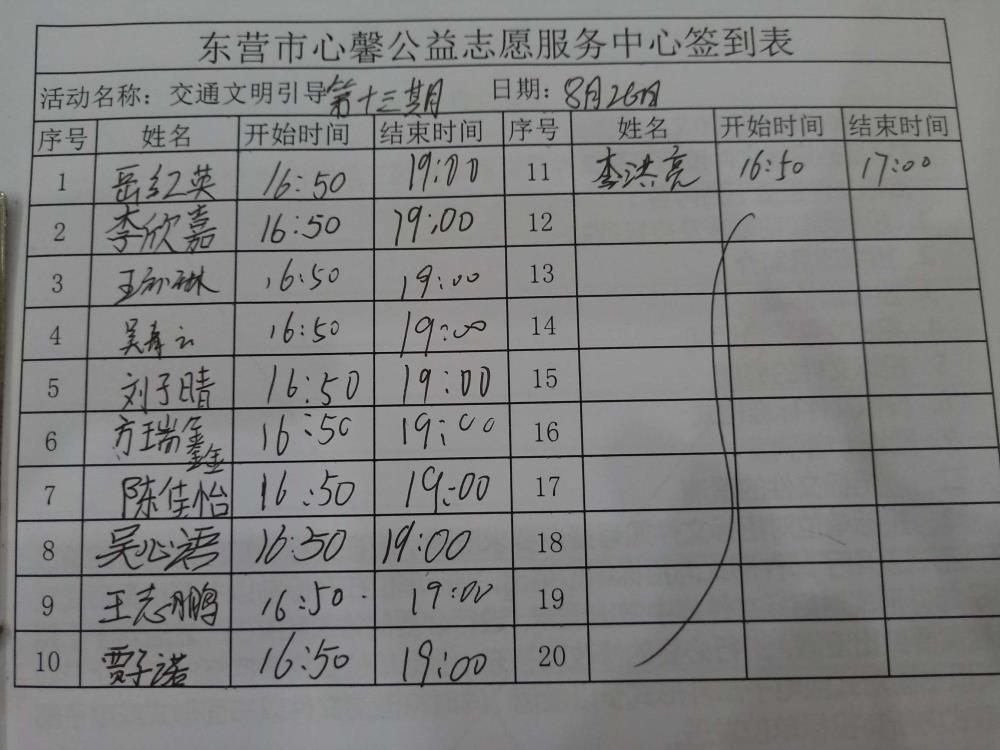 东营市心馨公益志愿服务中心签到表
活动名称：交通文明引导第十三期 日期：8月26日
序号 姓名 开始时间 结束时间 序号 姓名 开始时间 结束时间
1 岳红英 16:50 19:00 11 李洪亮 16:50 17:00
2 李欣嘉 16:50 19:00 12
3 16:50 19:00 13
4 16:50 19:00 14
5 刘子晴 16:50 19:00 15
6 方瑞鑫 16:50 19:00 16
7 陈佳怡 16:50 19:00 17
8 16:50 19:00 18
9 王志鹏 16:50 19:00 19
10 贾子诺 16:50 19:00 20